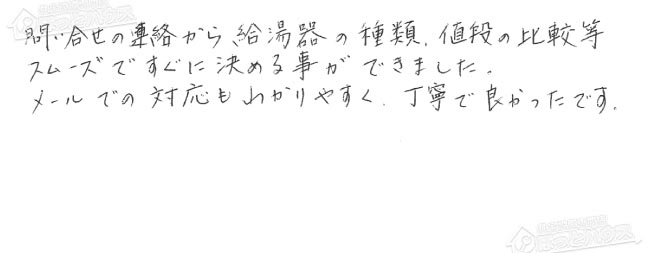 問い合せの連絡から給湯器の種類、値段の比較等
スムーズですぐに決める事ができました。
メールでの対応もわかりやすく、丁寧で良かったです。